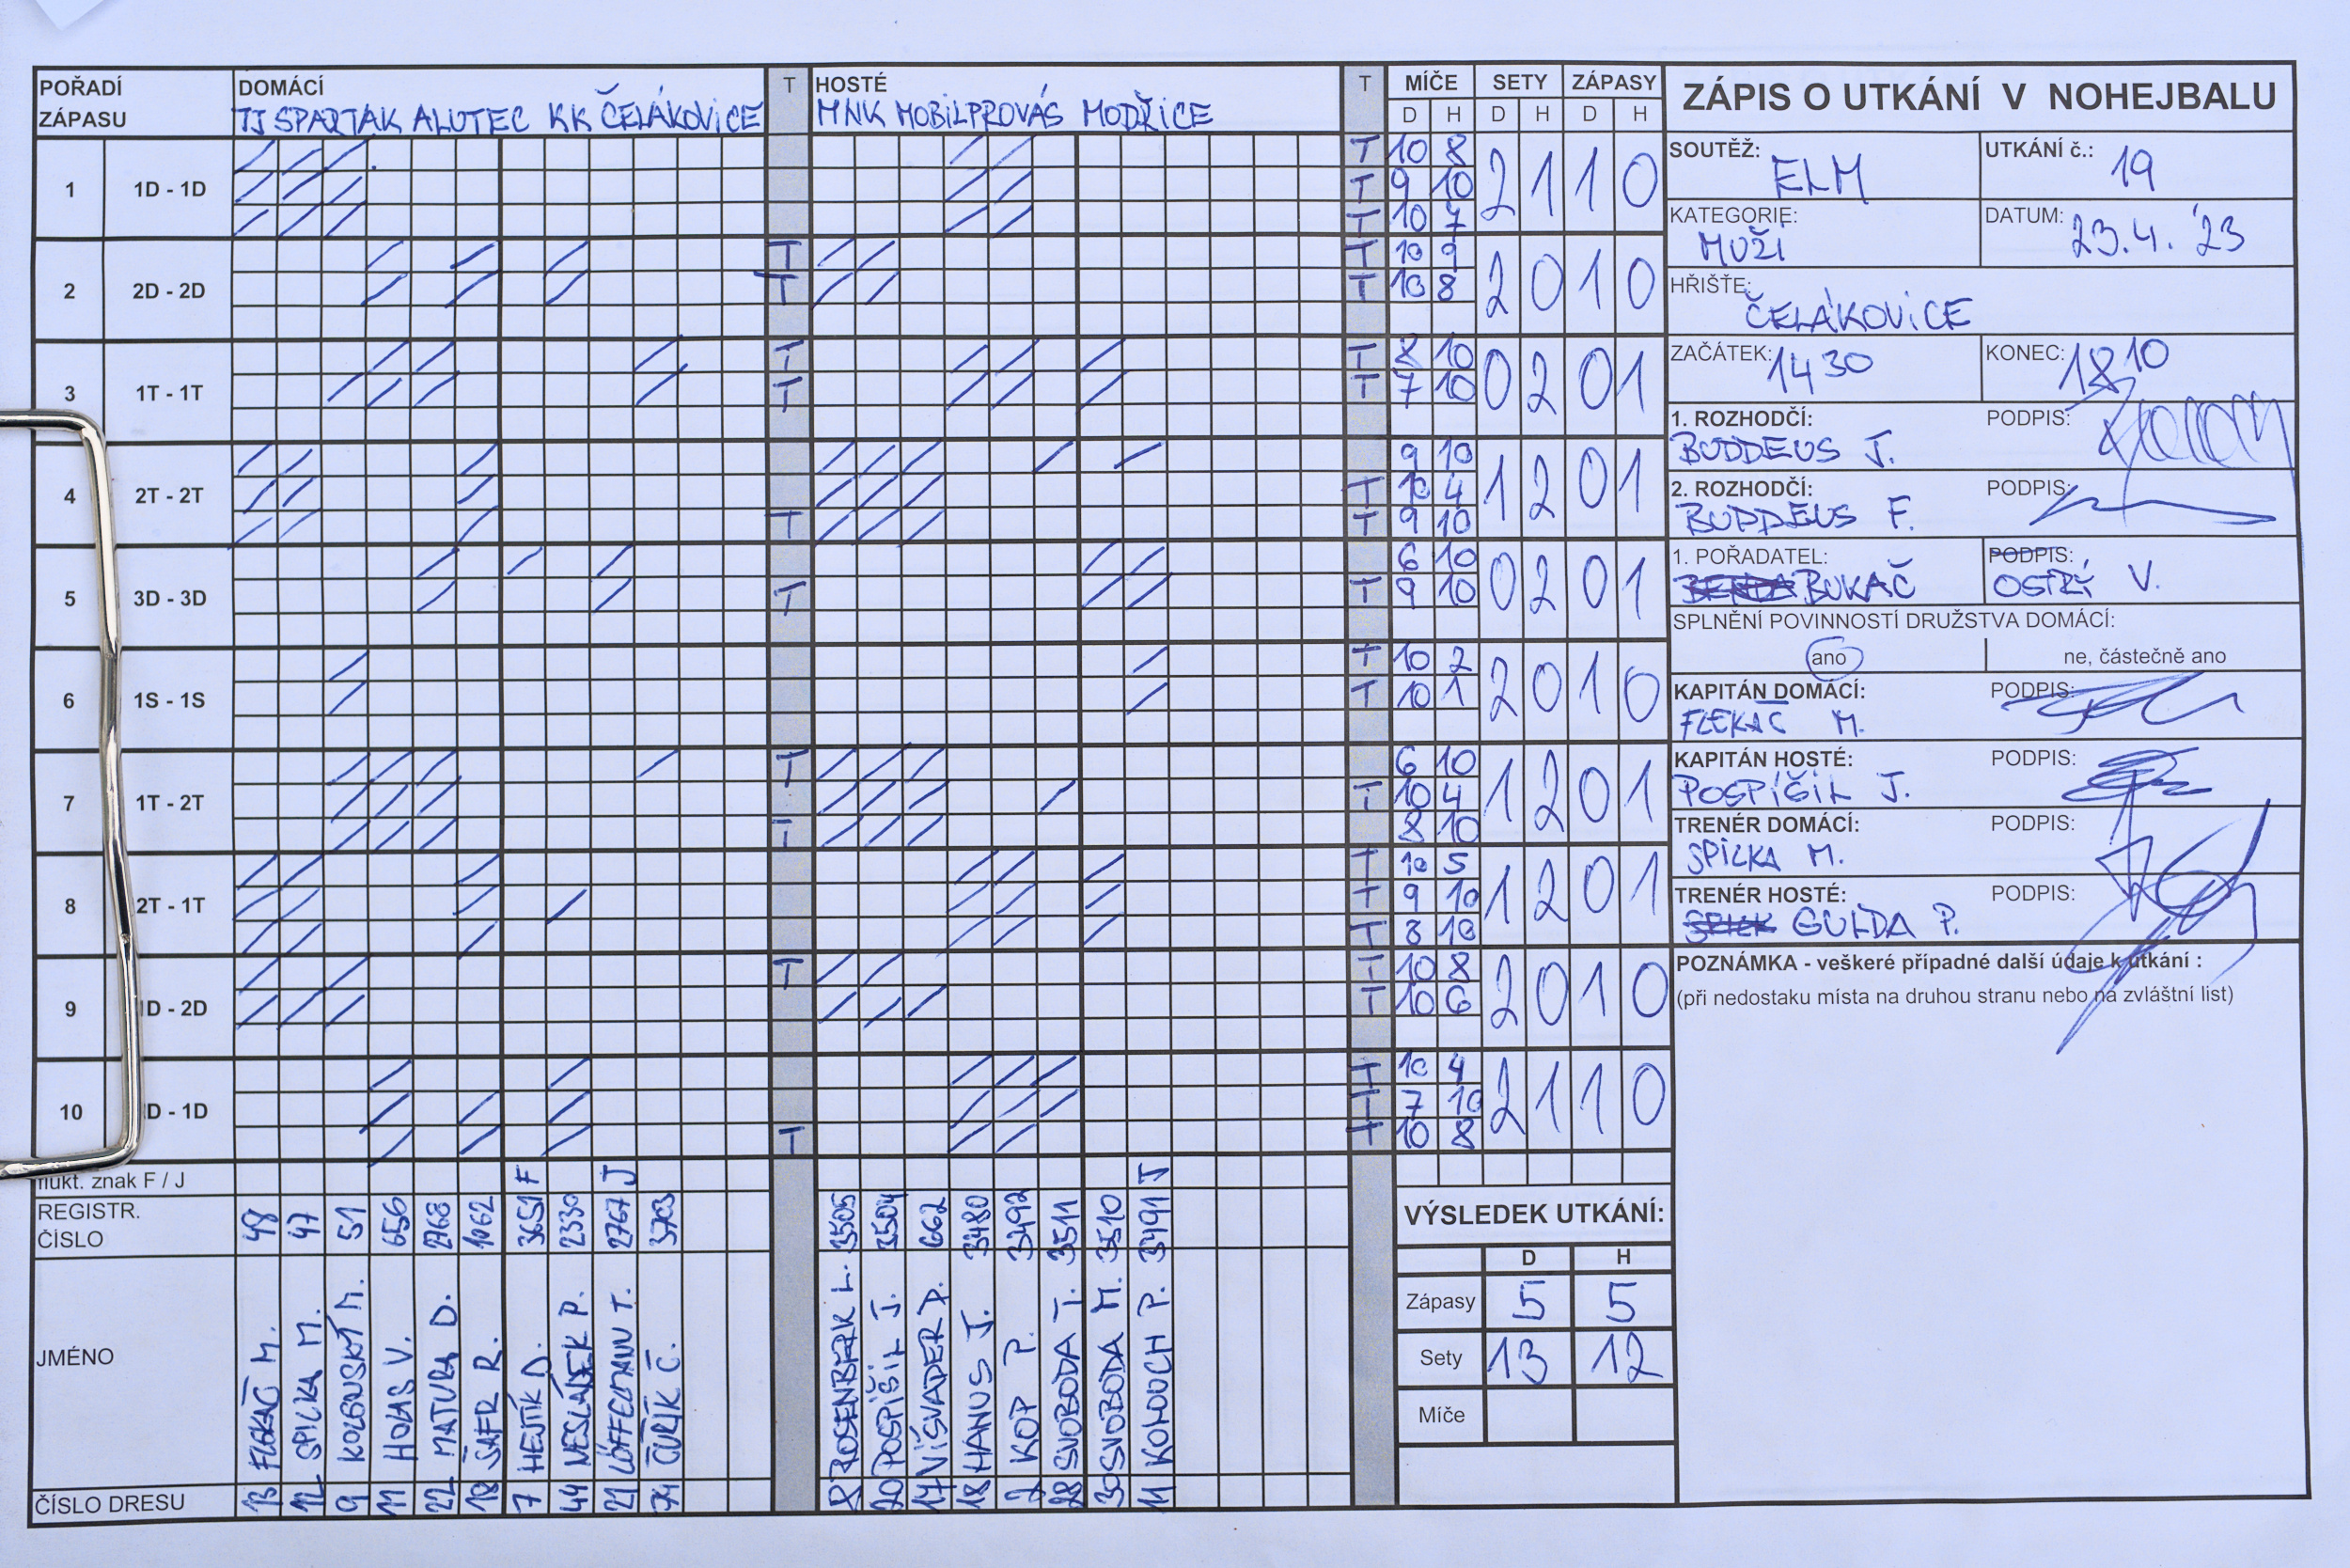 POŘADÍ ZÁPASU DOMÁCÍ T HOSTÉ T MÍČE SETY ZÁPASY
TJ SPARTAK ALUTEC KK ČELÁKOVICE MNK MOBILPROVÁS MODŘICE D H D H D H
1 1D - 1D T 10 8 2 1 1 0
T 9 10
T 10 7
2 2D - 2D T T 10 9 2 0 1 0
T T 10 8
3 1T - 1T T T 8 10 0 2 0 1
T T 7 10
4 2T - 2T 9 10 1 2 0 1
T 10 4
T T 9 10
5 3D - 3D 6 10 0 2 0 1
T T 9 10
6 1S - 1S T 10 2 2 0 1 0
T 10 1
7 1T - 2T T 6 10 1 2 0 1
T 10 4
T 8 10
8 2T - 1T T 10 5 1 2 0 1
T 9 10
T 8 10
9 D - 2D T T 10 8 2 0 1 0
T 10 6
10 D - 1D T 10 4 2 1 1 0
T 7 10
T T 10 8
flukt. znak F / J F J J
REGISTR. ČÍSLO 48 47 51 656 2768 1062 3651 2330 2767 3703 3505 3504 662 3480 3492 3511 3510 3491
JMÉNO FLEKAČ M. SPILKA M. KOLBUSKÝ M. HOLAS V. MATURA D. ŠAFR R. HEJTÍK D. NESLÁDEK P. LÖFFELMANN T. ČUŘÍK Č. ROSENBERK L. POSPÍŠIL J. VÍŠVADER P. HANUS J. KOP P. SVOBODA T. SVOBODA M. KOLOUCH P.
ČÍSLO DRESU 13 12 9 11 22 18 7 44 21 74 8 20 17 18 2 28 30 11
VÝSLEDEK UTKÁNÍ:
D H
Zápasy 5 5
Sety 13 12
Míče
ZÁPIS O UTKÁNÍ V NOHEJBALU
SOUTĚŽ: ELM UTKÁNÍ č.: 19
KATEGORIE: MUŽI DATUM: 23.4. '23
HŘIŠTĚ: ČELÁKOVICE
ZAČÁTEK: 14 30 KONEC: 18 10
1. ROZHODČÍ: PODPIS:
BUDDEUS J.
2. ROZHODČÍ: PODPIS:
BUDDEUS F.
1. POŘADATEL: PODPIS:
BUKAČ OSTRÝ V.
SPLNĚNÍ POVINNOSTÍ DRUŽSTVA DOMÁCÍ:
ano ne, částečně ano
KAPITÁN DOMÁCÍ: PODPIS:
FLEKAČ M.
KAPITÁN HOSTÉ: PODPIS:
POSPÍŠIL J.
TRENÉR DOMÁCÍ: PODPIS:
SPILKA M.
TRENÉR HOSTÉ: PODPIS:
GULDA P.
POZNÁMKA - veškeré případné další údaje k utkání :
(při nedostaku místa na druhou stranu nebo na zvláštní list)